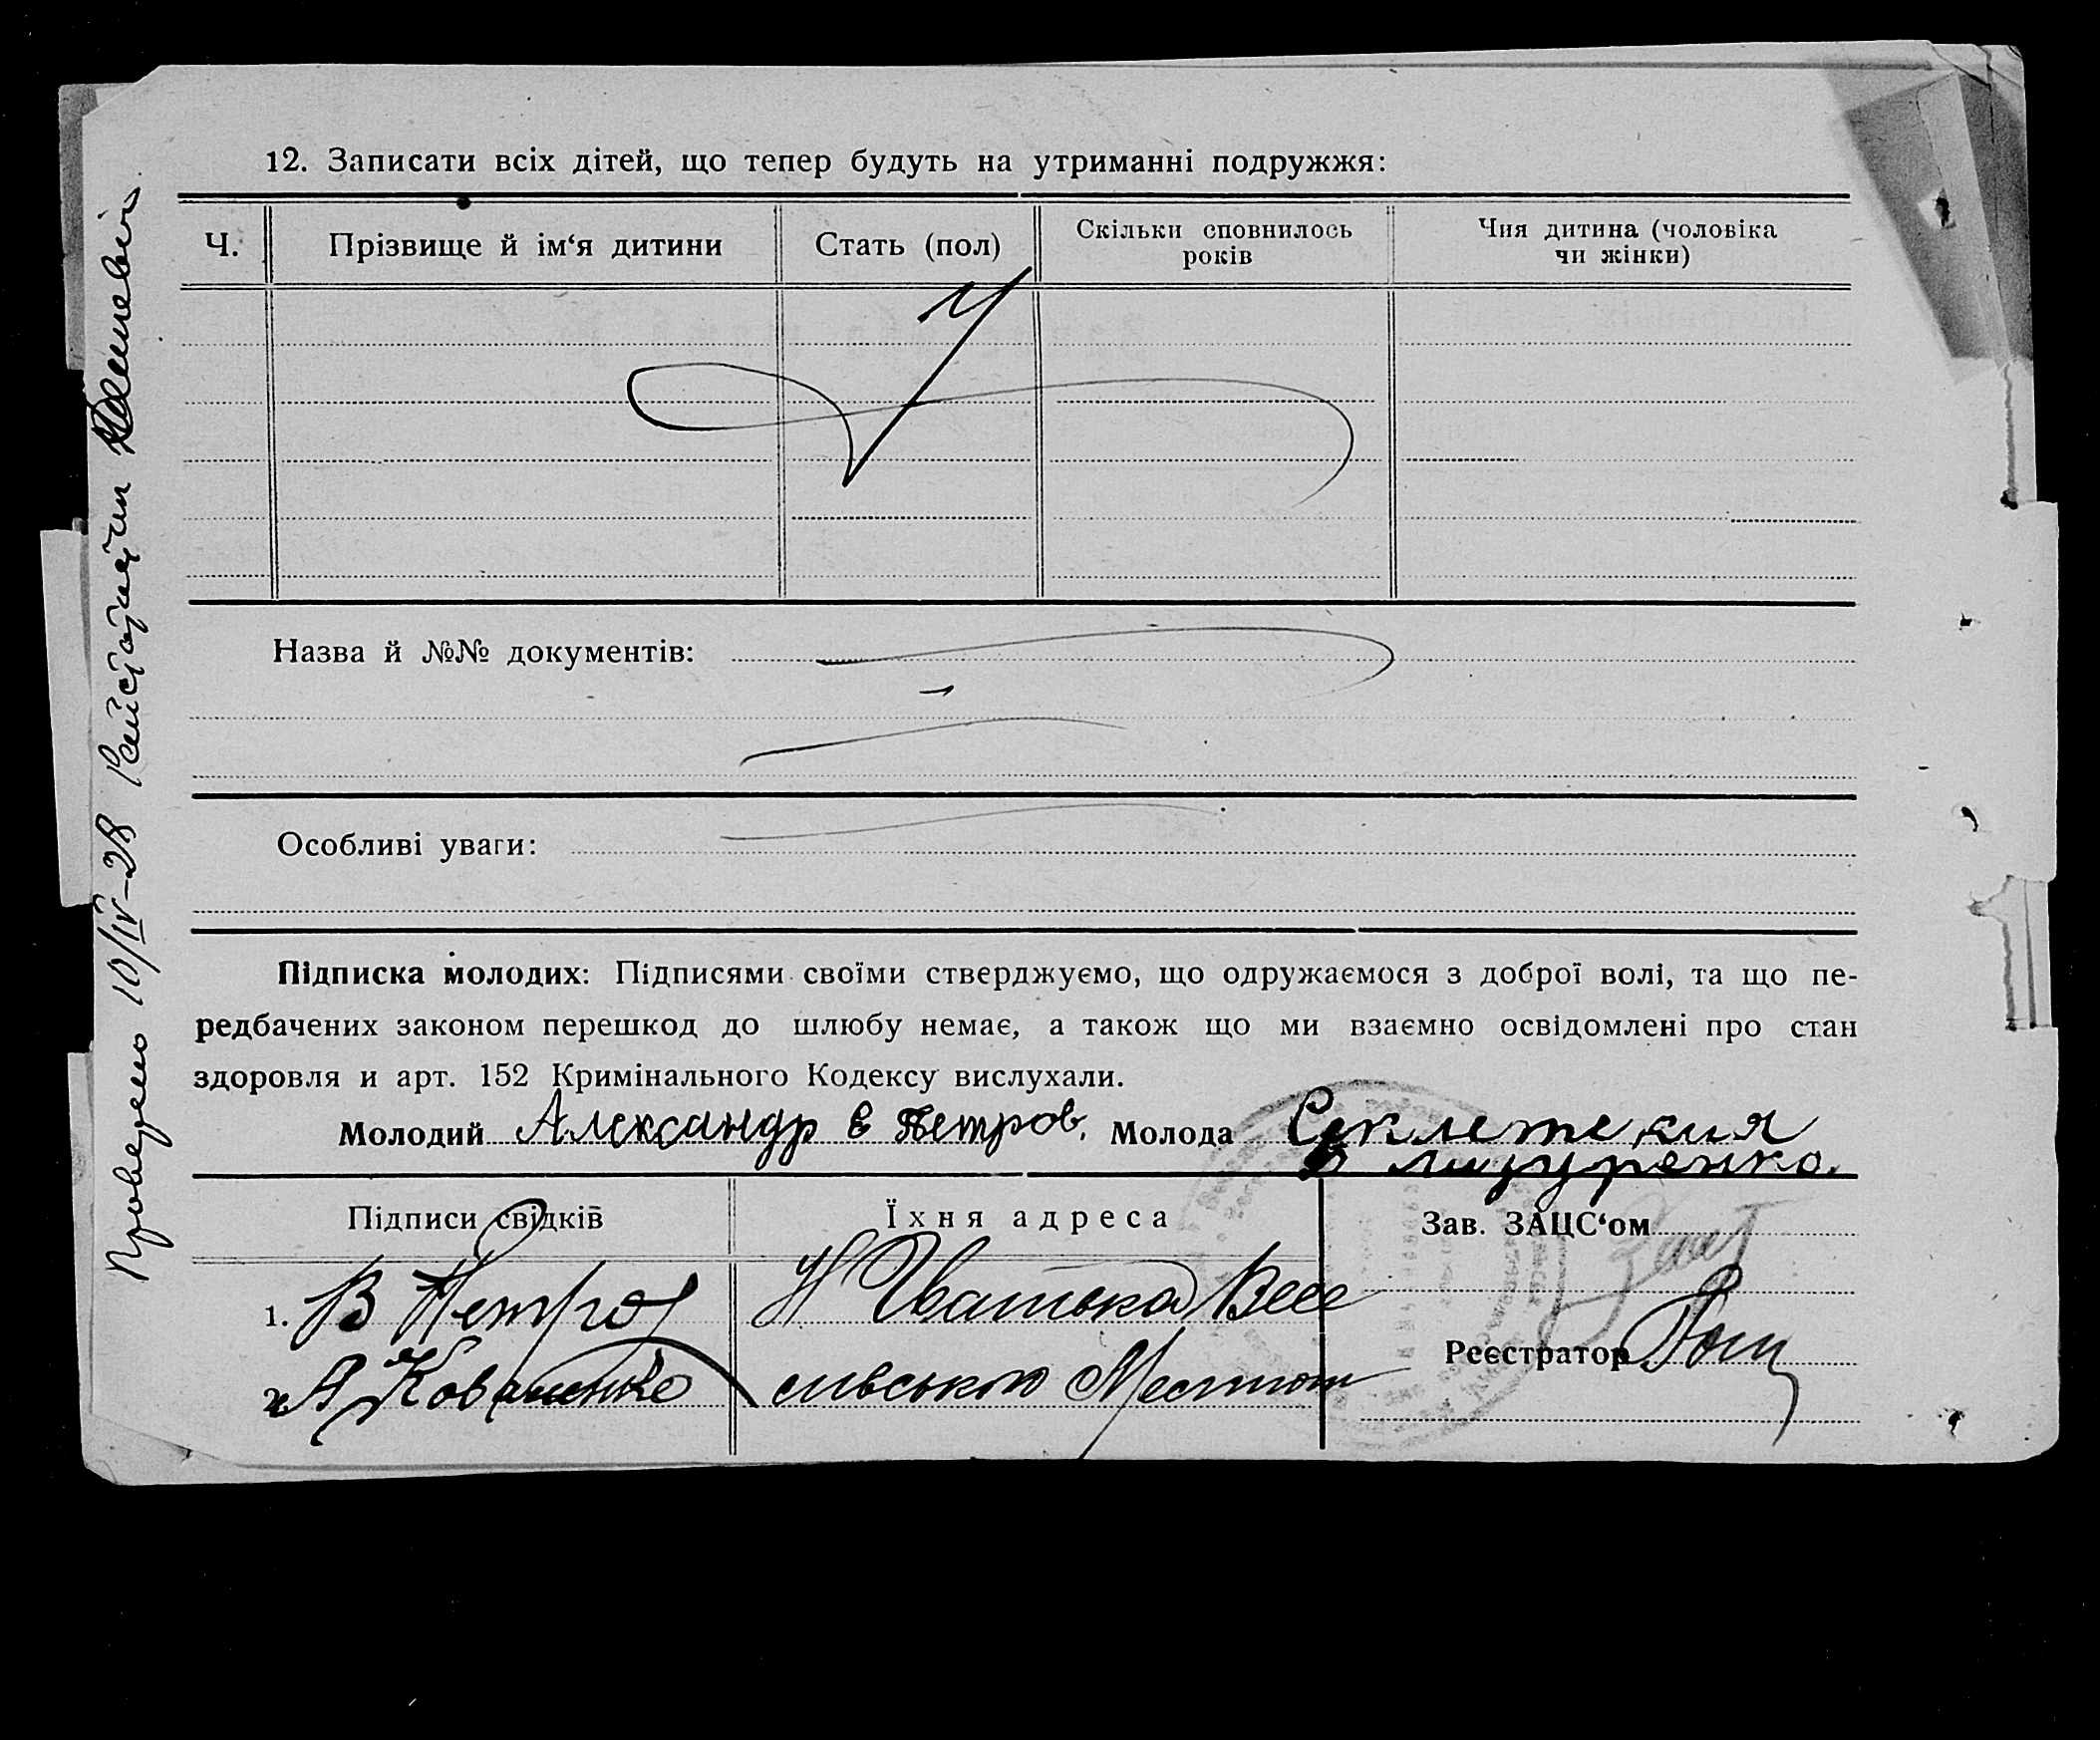 12. Записати всіх дітей, що тепер будуть на утриманні подружжя:
Ч.
Прізвище й ім‘я дитини
Стать (пол)
Скільки сповнилось
років
Чия дитина (чоловіка
чи жінки)
Назва й №№ документів:
Особливі уваги:
Підписка молодих: Підписями своїми стверджуємо, що одружаємося з доброї волі, та що пе-
редбачених законом перешкод до шлюбу немає, а також що ми взаємно освідомлені про стан
здоровля и арт. 152 Кримінального Кодексу вислухали.
Молодий Александр в Петров. Молода
Мизуренко.
Підписи свідків
Їхня адреса
Зав. ЗАЦС‘ом
1. В Петров
2. А Коваленко
Реєстратор
Проведено 10/IV-28